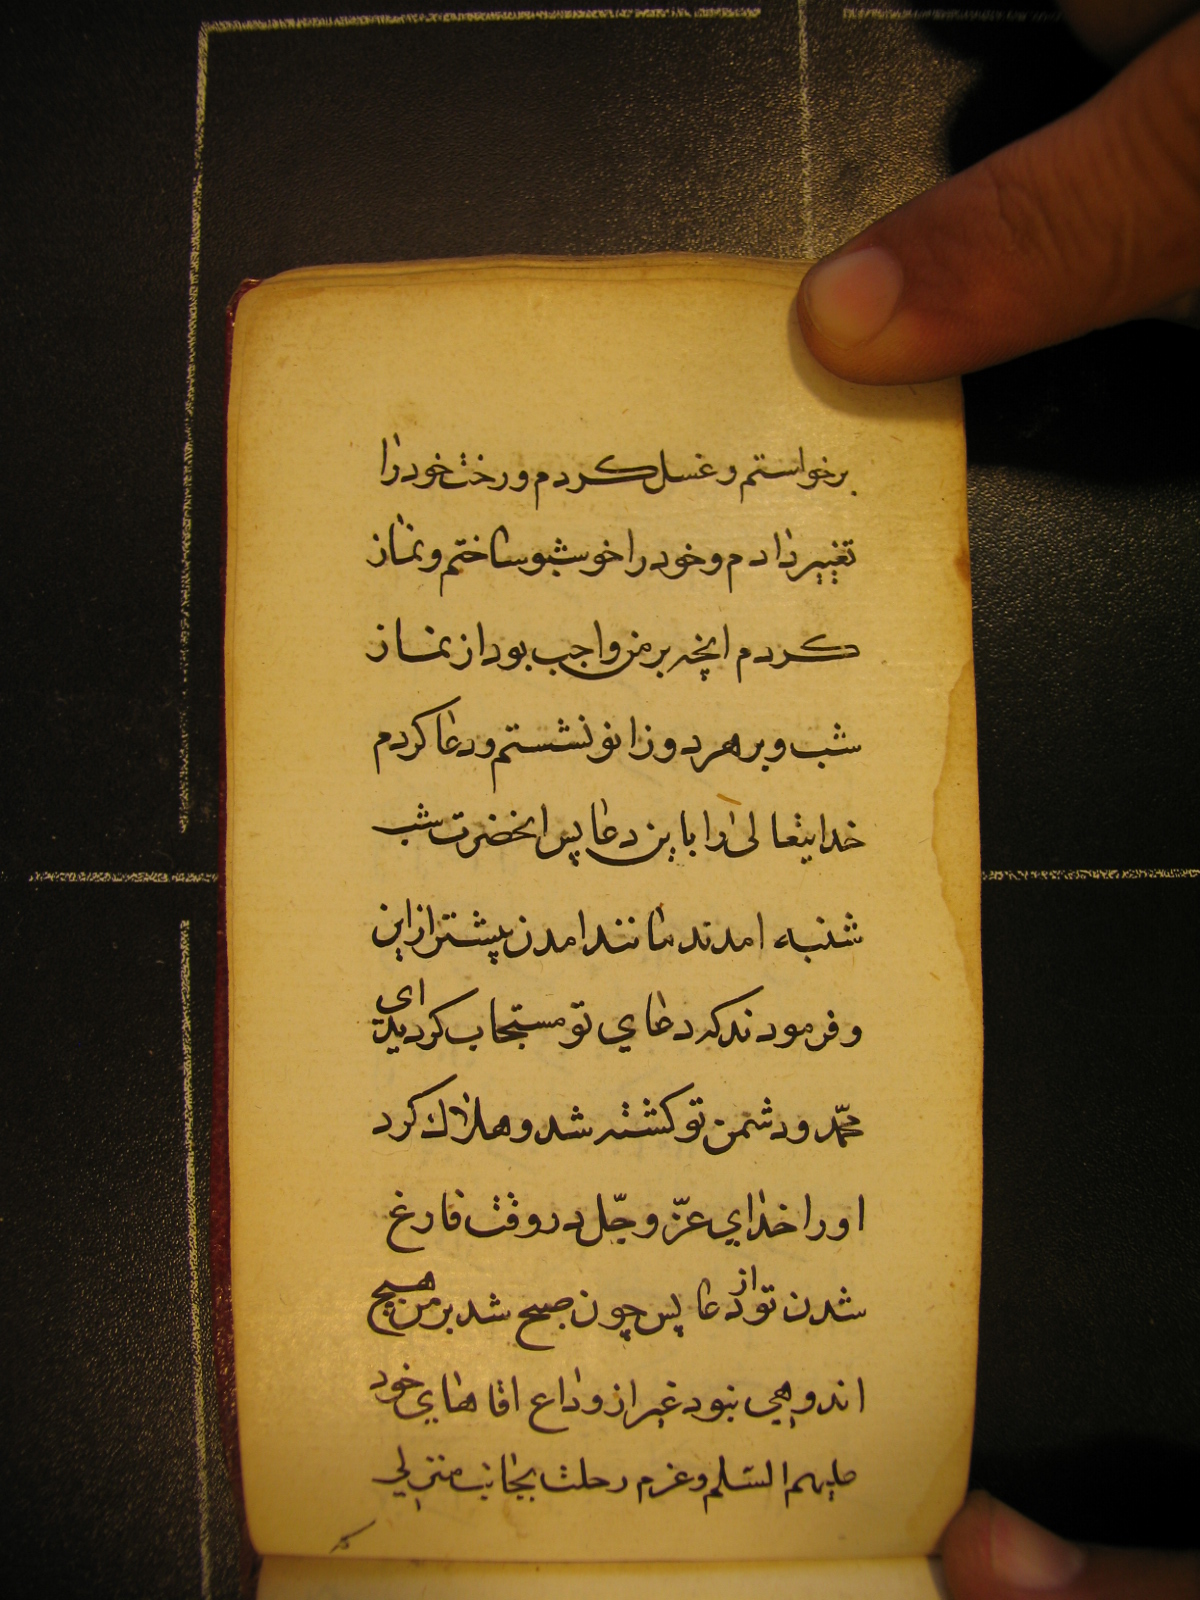 برخواستم و غسل کردم و رخت خود را
تغییر دادم و خود را خوشبو ساختم و نماز
کردم انچه بر من واجب بود از نماز
شب و بر هر دو زانو نشستم و دعا کردم
خدایتعالی را باین دعا پس انحضرت شب
شنبه امدند مانند امدن پیشتر از این
و فرمودند که دعای تو مستجاب کردید ای
محمّد و دشمن تو کشته شد و هلاک کرد
او را خدای عزّ و جّل در وقت فارغ
شدن تو از دعا پس چون صبح شد بر من هیچ
اندوهی نبود غیر از وداع اقاهای خود
علیهم السّلم و عزم رحلت بجانب منزلی
که